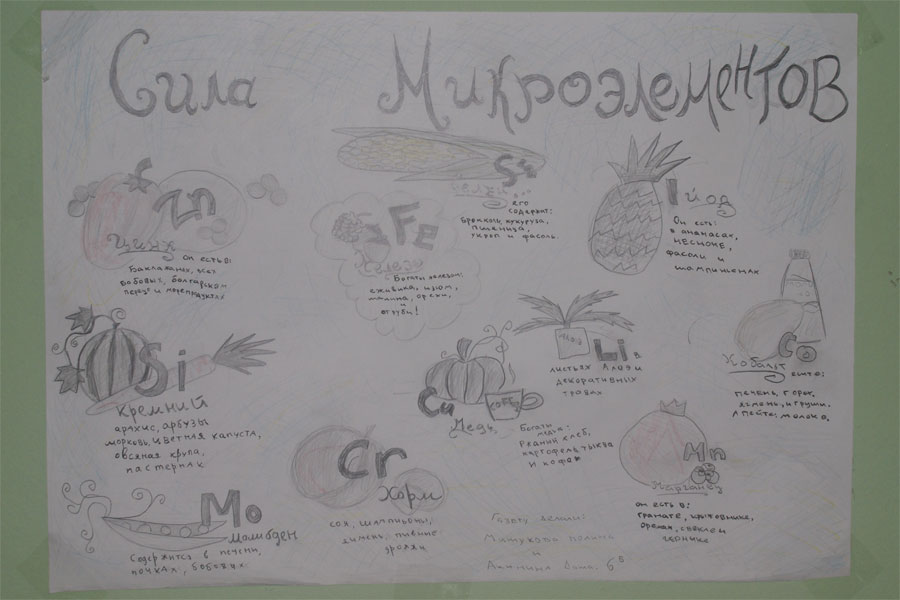 Сила Микроэлементов
Zn
Цинк он есть в:
Баклажанах, всех
бобовых, болгарском
перце и морепродуктах
Fe
Железо
Богаты железом:
ежевика, изюм,
малина, орехи,
и
отруби!
его
содержат:
Брокколи, кукуруза,
пшеница,
укроп и фасоль.
I йод
Он есть:
в ананасах,
чесноке,
фасоли и
шампиньонах
Si
Кремний
арахис, арбузы
морковь, цветная капуста,
овсяная крупа,
пастернак
Cu
Медь
COFFEE
Богаты
медью:
Ржаной хлеб,
картофель, тыква
и кофе
Li в
листьях Алоэ и
декоративных
травах
Co
Кобальт есть:
печень, горох,
ячмень, груши,
молоко.
Mn
Марганец
он есть в:
гранате, крыжовнике,
орехах, свекле,
Cr
Хром
соя, шампиньоны,
ячмень, пивные
дрожжи
Mo
Молибден
Содержится в печени,
почках, бобовых
Газету делали:
и
6 В